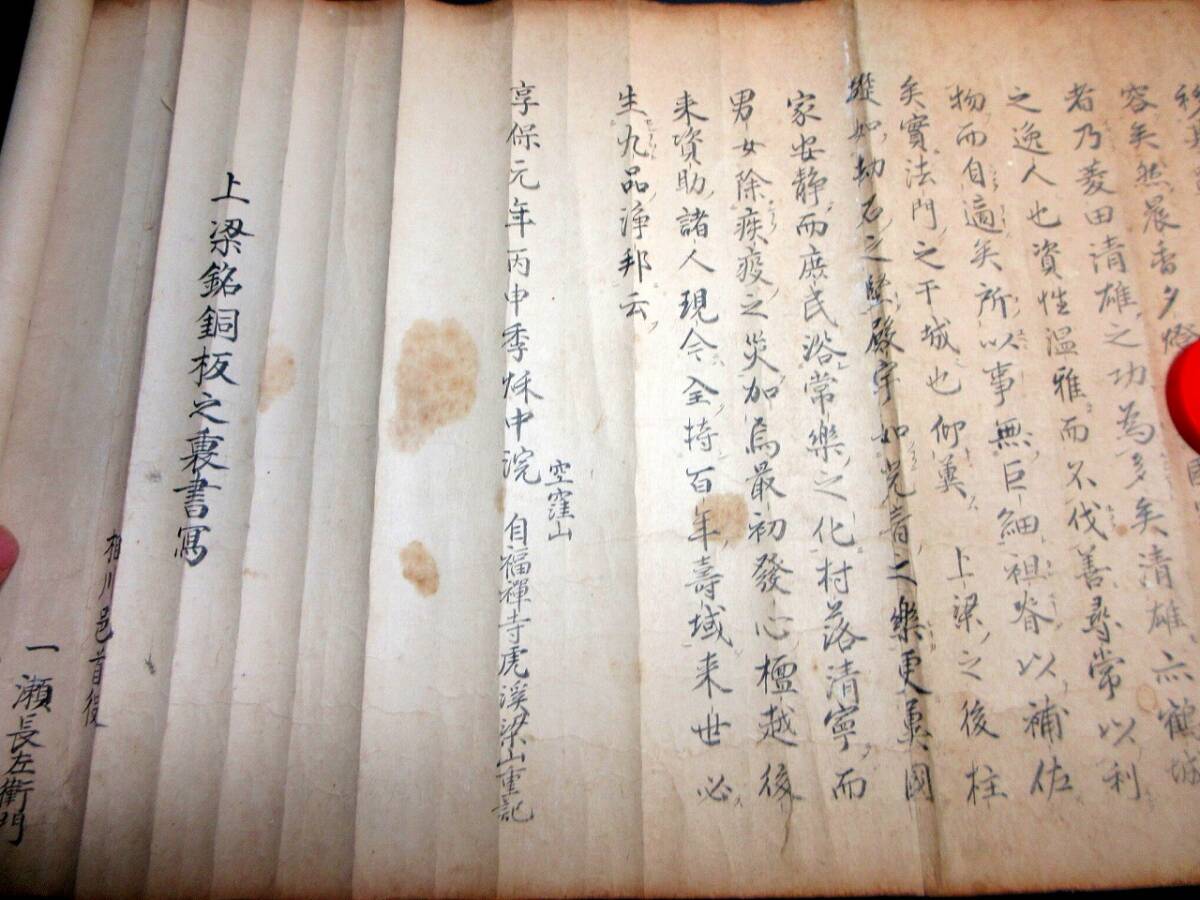 容矣然晨香夕燈
者乃菱田清雄之功為多矣清雄亦鶴城
之逸人也資性温雅而不伐善尋常以利
物而自適矣所以事無巨細祖眷以補佐
矣實法門之干城也仰冀上梁之後柱
礎如劫石之堅殿宇如兜率之樂更冀國
家安静而庶民浴常樂之化村落清寧而
男女除疾疫之災加焉最初發心檀越後
来資助諸人現今全持百年壽域来世必
生九品浄邦云
空窪山
享保元年丙申季秌中浣 自福禪寺虎溪梁山重記
上梁銘銅板之裏書寫
川邑首役
一瀬長左衛門